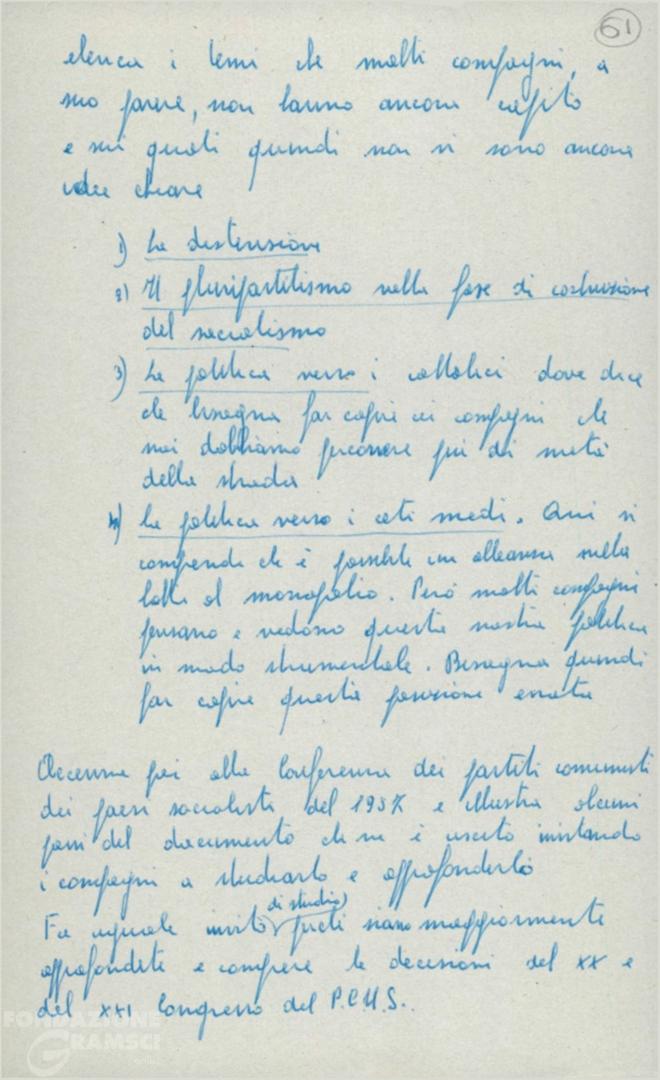 61
elenca i temi che molti compagni, a
suo parere, non hanno ancora capito
e sui quali quindi non vi sono ancora
idee chiare
1) La distensione
2) Il pluripartitismo nella fase di costruzione
del socialismo
3) La politica verso i cattolici dove dice
che bisogna far capire ai compagni che
noi dobbiamo percorrere più di metà
della strada
4) La politica verso i ceti medi. Qui si
comprende che è possibile un alleanza nella
lotta al monopolio. Però molti compagni
pensano e vedono questa nostra politica
in modo strumentale. Bisogna quindi
far capire questa posizione errata
Accenna poi alla Conferenza dei partiti comunisti
dei paesi socialisti del 1957 e illustra alcuni
passi del documento che ne è uscito invitando
i compagni a studiarlo e approfondirlo
di studio
Fa uguale invito perché siano maggiormente
approfondite e comprese le decisioni del XX e
del XXI Congresso del P.C.U.S..
FONDAZIONE
GRAMSCI